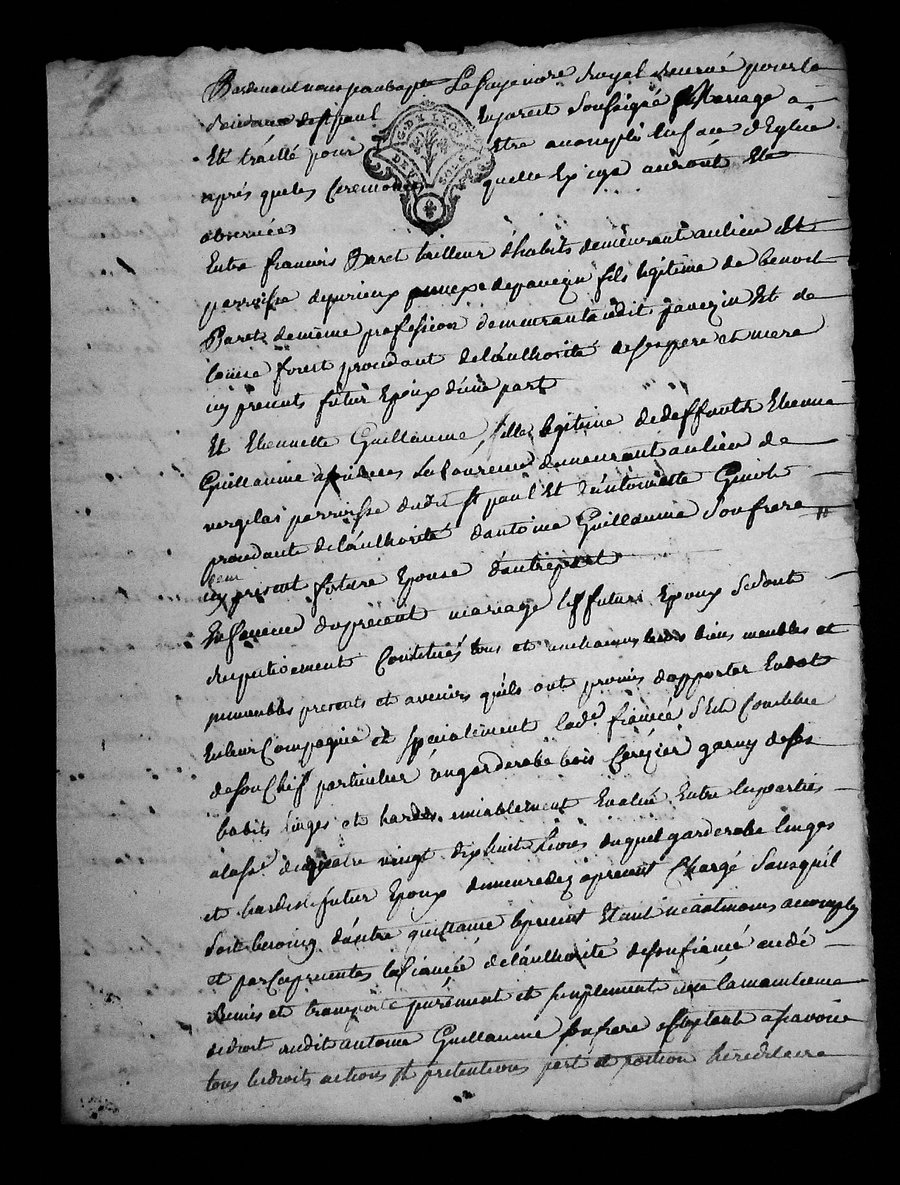 Pardevant nous jean baptte Lafaye nore Royal reservé pour la
paroisse de st paul les parties Soussigné Mariage a
Eté traitté pour Etre acompli En face d'Eglise
aprés que les Ceremonies quelle Exige auront Eté
observées
G. DE LYON
DEUX SOLS
Entre francois Baret tailleur d'habits demeurant au lieu Et
parroisse de annexe de paveyin fils legitime de benoit
Baret de meme profession demeurant audit paveyin Et de
louise forest procedant de l'authorité de ses pere et mere
icy presents futur Epoux d'une part
Et Etiennette Guillaume fille legitime de deffunts Etienne
Guillaume laboureur demeurant au lieu de
parroisse dudit st paul Et d'antoinette
procedante de l'authorité d'antoine Guillaume Son frere
icy present future Epouse d'autrepart
En faveur du present mariage les futurs Epoux Se sont
respectivement Constitués tous et uns chacuns leurs biens meubles et
immeubles presents et avenirs qu'ils ont promis d'apporter En dot
En leur Compagnie et specialement lade fiancée S'est Constituée
de son Chef particulier un garderobe bois Cerizier garny de ses
habits linges et hardes amiablement Evalué Entre les parties
a la so de quatre vingt dix huit livres duquel garderobe linges
et hardes le futur Epoux demeure dez apresent Chargé Sans qu'il
soit besoing d'autre quittance le present Etant neantmoins accomply
et par ces presentes la fiancée de l'authorité de son fiancé a cedé
Remis et transporté purement et simplement avec la maintenue
de droit audit antoine Guillaume son frere acceptant a Savoir
tous les droits actions et pretentions part et portion hereditaire